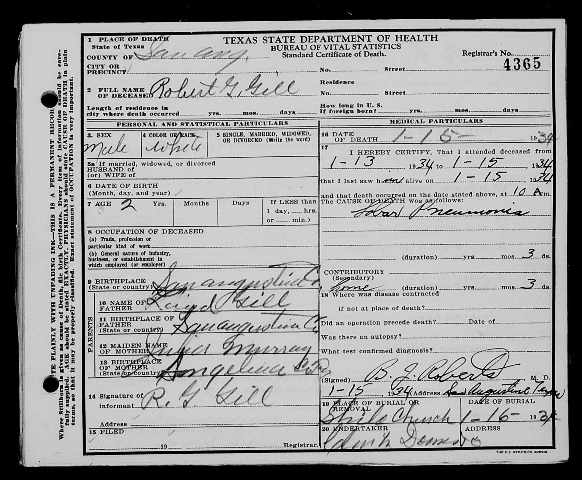 TEXAS STATE DEPARTMENT OF HEALTH
BUREAU OF VITAL STATISTICS
Standard Certificate of Death.
1 PLACE OF DEATH
State of Texas
COUNTY OF San Aug.
CITY OR
PRECINCT
Registrar's No.
4365
No. Street
2 FULL NAME
OF DECEASED Robert G. Gill
Residence
No. Street
Length of residence in
city where death occurred yrs. mos. days
How long in U. S.
if foreign born? yrs. mos. days
PERSONAL AND STATISTICAL PARTICULARS
3 SEX
Male
4 COLOR OR RACE
White
5 SINGLE, MARRIED, WIDOWED,
OR DIVORCED (Write the word)
5a If married, widowed, or divorced
HUSBAND of
(or) WIFE of
6 DATE OF BIRTH
(Month, day, and year)
7 AGE 2 Yrs. Months Days
If LESS than
1 day, hrs.
or min.
8 OCCUPATION OF DECEASED
(a) Trade, profession or
particular kind of work
(b) General nature of industry,
business, or establishment in
which employed (or employer)
9 BIRTHPLACE
(State or country) San Augustine Co
PARENTS
10 NAME OF
FATHER Gill
11 BIRTHPLACE OF
FATHER
(State or country) San Augustine Co
12 MAIDEN NAME
OF MOTHER Murray
13 BIRTHPLACE
OF MOTHER
(State or country) Angelina Co
14 Signature of
informant R. G. Gill
Address
15 FILED
19 Registrar
MEDICAL PARTICULARS
16 DATE
OF DEATH 1-15- 1934
17 I HEREBY CERTIFY, That I attended deceased from
1-13 1934 to 1-15 1934
that I last saw him alive on 1-15 1934
and that death occurred on the date stated above, at 10 A m.
The CAUSE OF DEATH was as follows:
Lobar Pneumonia
(duration) yrs. mos. 3 ds.
CONTRIBUTORY
(Secondary) none
(duration) yrs. mos. 3 ds.
18 Where was disease contracted
if not at place of death?
Did an operation precede death? Date of
Was there an autopsy?
What test confirmed diagnosis?
(Signed) B. J. Roberts M. D.
1-15 1934 Address San Augustine Texas
19 PLACE OF BURIAL OR
REMOVAL
Church 1-16- 1934
20 UNDERTAKER
ADDRESS